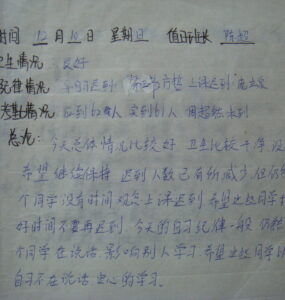 时间 12月12日 星期日 值日班长 陈超
卫生情况 良好
纪律情况 早自习迟到 上课迟到
考勤情况 应到62人 实到61人 周超然未到
总论: 今天总体情况比较好 卫生比较干净 没
希望继续保持 迟到人数已有所减少 但仍然
个同学没有时间观念上课迟到 希望这些同学
好时间不要再迟到. 今天的自习纪律一般 仍然
个同学在说话. 影响别人学习. 希望这些同学以
自习不在说话 安心的学习.